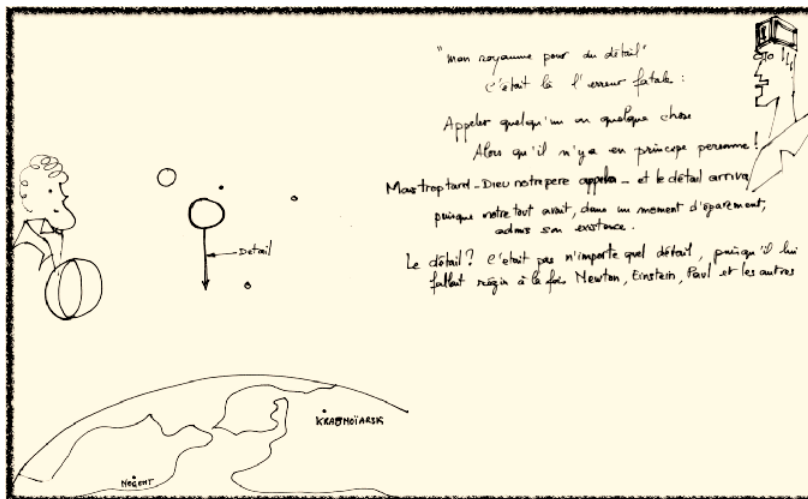 "mon royaume pour du détail"
c'était là l'erreur fatale :
Appeler quelqu'un ou quelque chose
Alors qu'il n'y a en principe personne !
Mais trop tard - Dieu notre père appela - et le détail arriva
puisque notre tout avait, dans un moment d'égarement,
admis son existence.
Le détail ? C'etait pas n'importe quel détail, puisqu'il lui
fallait à la fois Newton, Einstein, Paul et les autres
Detail
KRASNOÏARSK
NOGENT